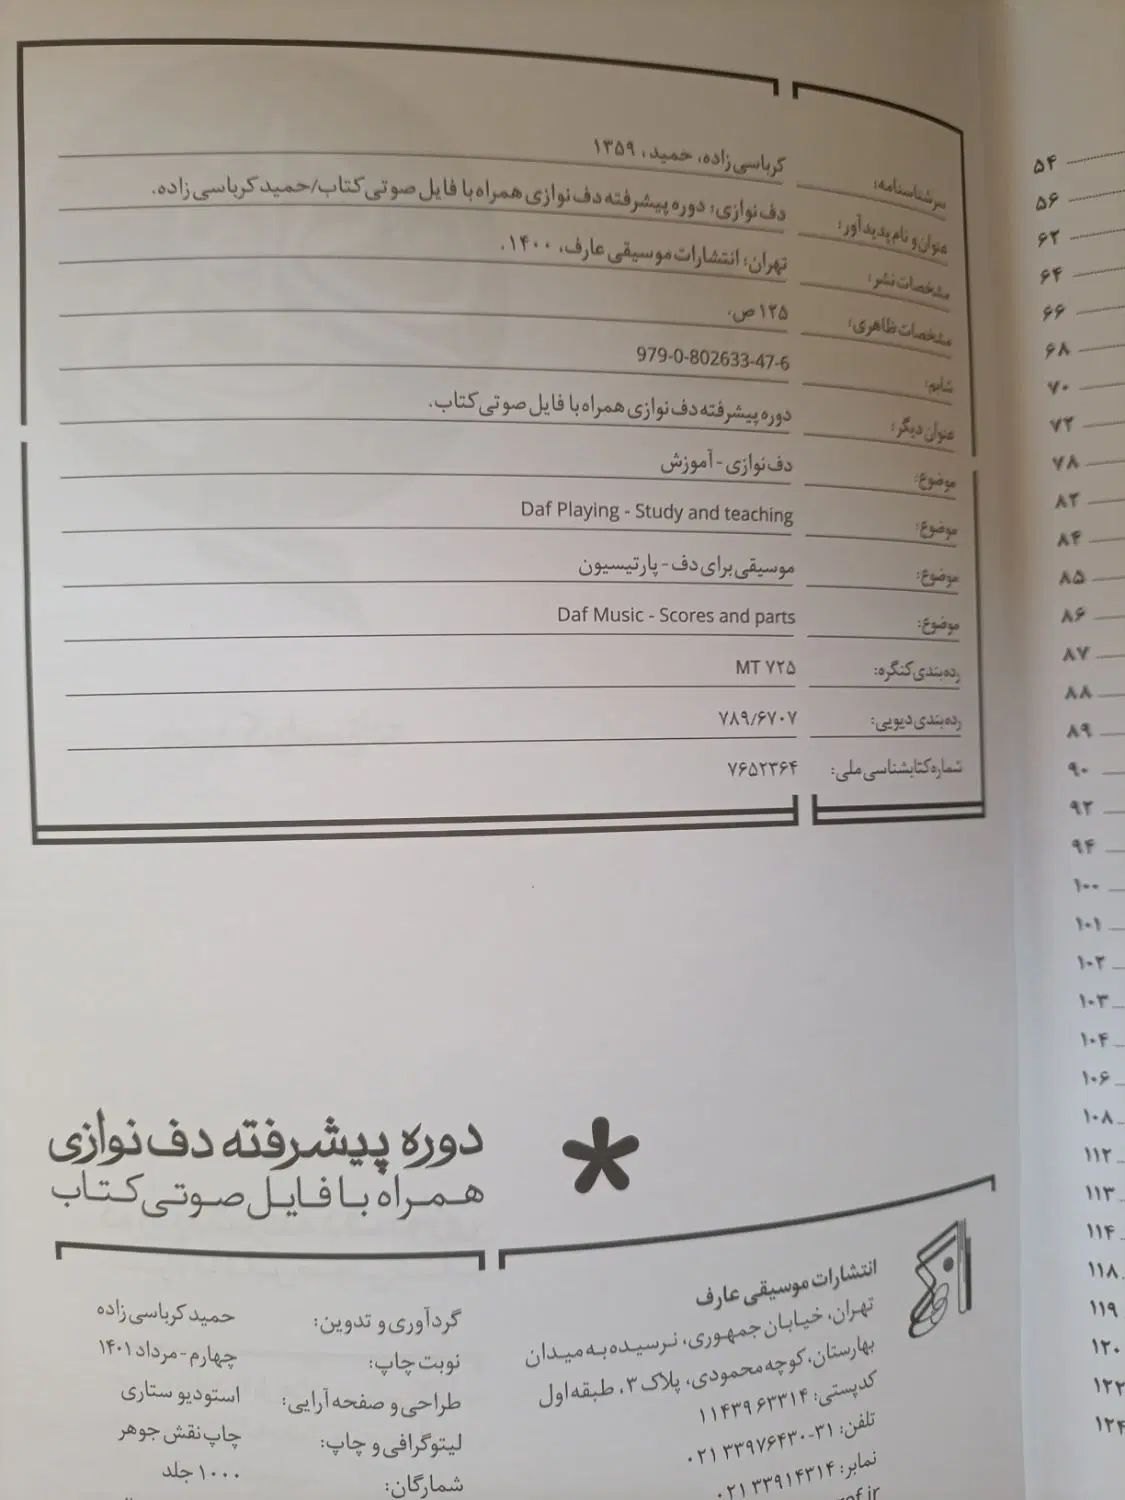 سرشناسنامه: کرباسی زاده، حمید، ۱۳۵۹
عنوان و نام پدیدآور: دف نوازی: دوره پیشرفته دف نوازی همراه با فایل صوتی کتاب/حمید کرباسی زاده.
مشخصات نشر: تهران: انتشارات موسیقی عارف، ۱۴۰۰.
مشخصات ظاهری: ۱۲۵ ص.
شابم: 979-0-802633-47-6
عنوان دیگر: دوره پیشرفته دف نوازی همراه با فایل صوتی کتاب.
موضوع: دف نوازی - آموزش
موضوع: Daf Playing - Study and teaching
موضوع: موسیقی برای دف - پارتیسیون
موضوع: Daf Music - Scores and parts
رده بندی کنگره: MT ۷۲۵
رده بندی دیویی: ۷۸۹/۶۷۰۷
شماره کتابشناسی ملی: ۷۶۵۲۳۶۴
دوره پیشرفته دف نوازی
همراه با فایل صوتی کتاب
انتشارات موسیقی عارف
تهران، خیابان جمهوری، نرسیده به میدان
بهارستان، کوچه محمودی، پلاک ۳، طبقه اول
کدپستی: ۱۱۴۳۹۶۳۳۱۴
تلفن: ۳۱-۰۲۱۳۳۹۷۶۴۳۰
نمابر: ۰۲۱۳۳۹۱۴۳۱۴
گردآوری و تدوین: حمید کرباسی زاده
نوبت چاپ: چهارم - مرداد ۱۴۰۱
طراحی و صفحه آرایی: استودیو ستاری
لیتوگرافی و چاپ: چاپ نقش جوهر
شمارگان: ۱۰۰۰ جلد
۵۴
۵۶
۶۲
۶۴
۶۶
۶۸
۷۰
۷۲
۷۸
۸۲
۸۴
۸۵
۸۶
۸۷
۸۸
۸۹
۹۰
۹۲
۹۴
۱۰۰
۱۰۱
۱۰۲
۱۰۳
۱۰۴
۱۰۶
۱۰۸
۱۱۲
۱۱۳
۱۱۴
۱۱۸
۱۱۹
۱۲۰
۱۲۲
۱۲۴